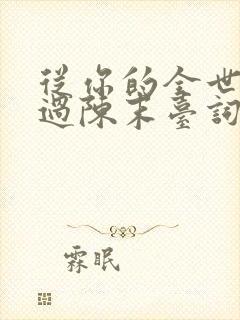 從你的全世
過陳末臺詞
霖眠